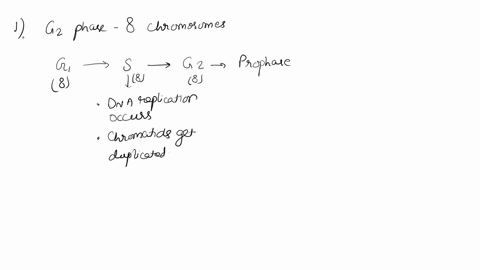 1). G2 phase - 8 chromosomes
G1 → S → G2 → Prophase
(8) ↓(8) (8)
• DNA replication
occurs
• Chromatids get
duplicated